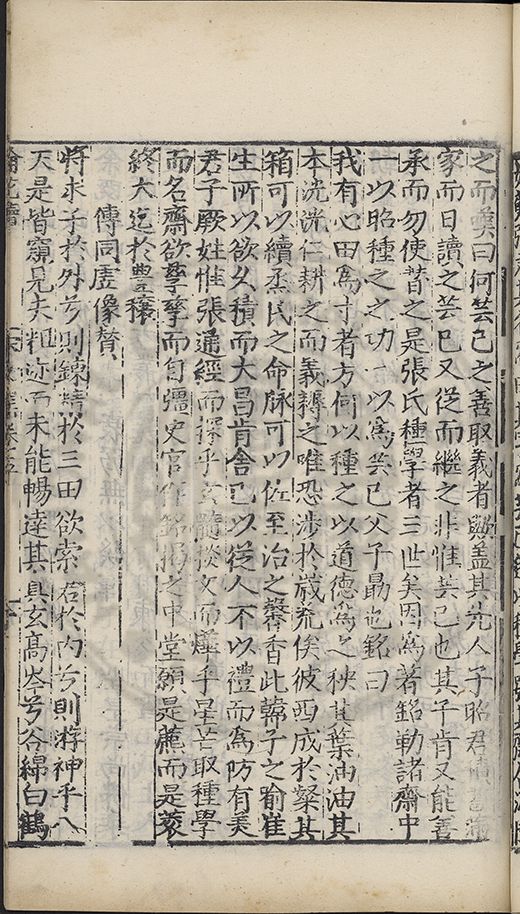 之而嘆曰何芸己之善取義者歟盖其先人子昭君
家而日讀之芸己又從而繼之非惟芸己也其子肯又能善
承而勿使昔之是張氏種學者三世矣因為著銘勒諸齋中
一以昭種之之功一以為芸己父子勗也銘曰
我有心田為寸者方何以種之以道德為之秧其葉油油其
本洸洸仁耕之而義耨之唯恐涉於荒俟彼西成於粲其
箱可以續烝民之命脉可以佐至治之馨香此韓子之喻崔
生所以欲久積而大昌肯舍己以從人不以禮而為防有美
君子厥姓惟張通經而探乎玄髓掞文而燁乎星芒取種學
而名齋欲孳孳而自彊史官作銘揭之中堂願是藨而是蓘
終大迄於豐穰
傳同虛像贊
將求子於外兮則鍊精於三田欲索君於內兮則游神乎八
天是皆窺見夫粗迹而未能暢達其真玄高岑兮谷綿白鶴